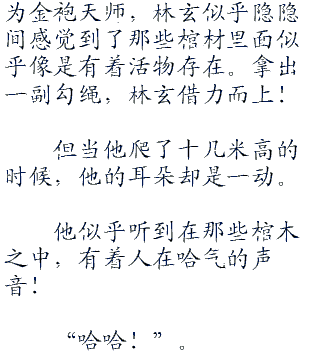 为金袍天师，林玄似乎隐隐
间感觉到了那些棺材里面似
乎像是有着活物存在。拿出
一副勾绳，林玄借力而上！
但当他爬了十几米高的
时候，他的耳朵却是一动。
他似乎听到在那些棺木
之中，有着人在哈气的声
音！
“哈哈！”。